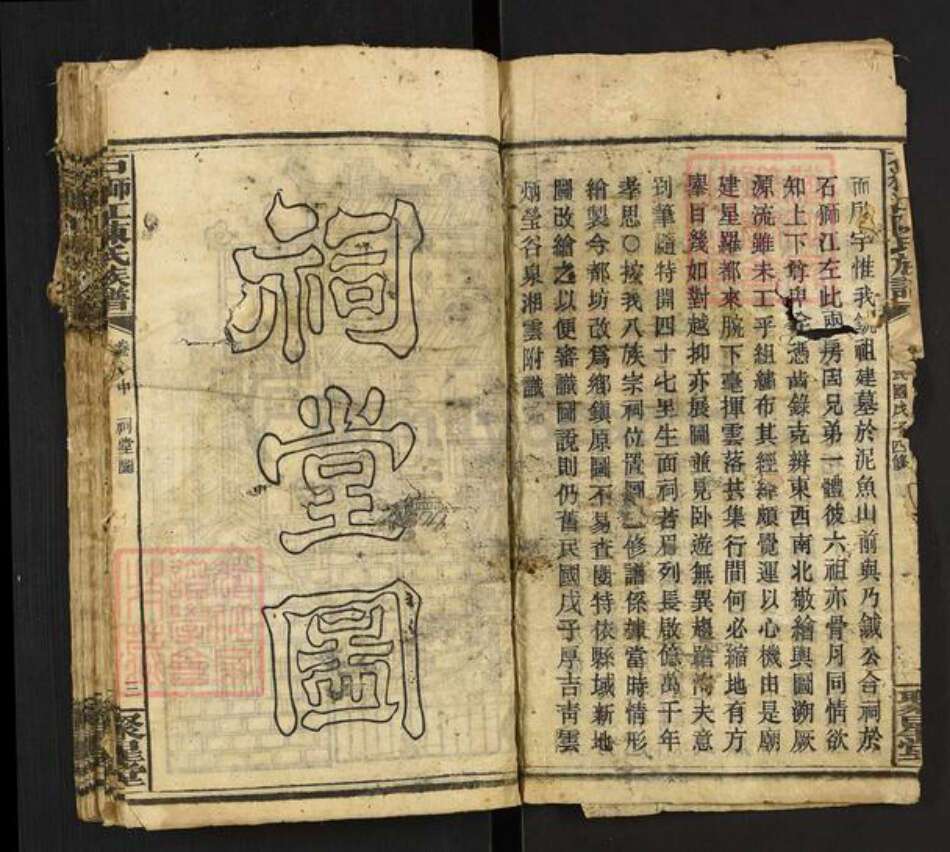 而辰宇惟我銃祖建墓於泥魚山前與乃鉞公合祠於
石獅江左此兩房固兄弟一體彼六祖亦骨月同情欲
知上下爺卑全憑齒錄克辨東西南北敬繪輿圖溯厥
源流雖未工乎組繡布其經緯頗覺運以心機由是廟
建星羅都來腕下毫揮雲落甚集行間何必縮地有方
舉目幾如對越抑亦展圖並見卧遊無異趨蹌洵夫意
到筆隨特開四十七里生面祠若眉列長啟億萬千年
孝思○按我八族宗祠位置圖一修譜係據當時情形
繪製今都坊改為鄉鎮原圖不易查閱特依縣域新地
圖改繪之以便審識圖說則仍舊民國戊子厚吉青雲
炳瑩谷泉湘雲附識
民國戊子四修
聚星堂
祠堂圖
石獅江陳氏族譜
卷八中
祠堂圖
三
聚星堂